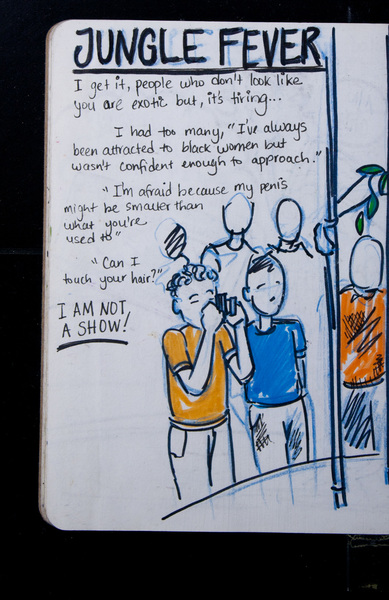 JUNGLE FEVER
I get it, people who don't look like
you are exotic but, it's tiring...
I had too many, "I've always
been attracted to black women but
wasn't confident enough to approach."
"I'm afraid because my penis
might be smaller than
what you're
used to"
"Can I
touch your hair?"
I AM NOT
A SHOW!